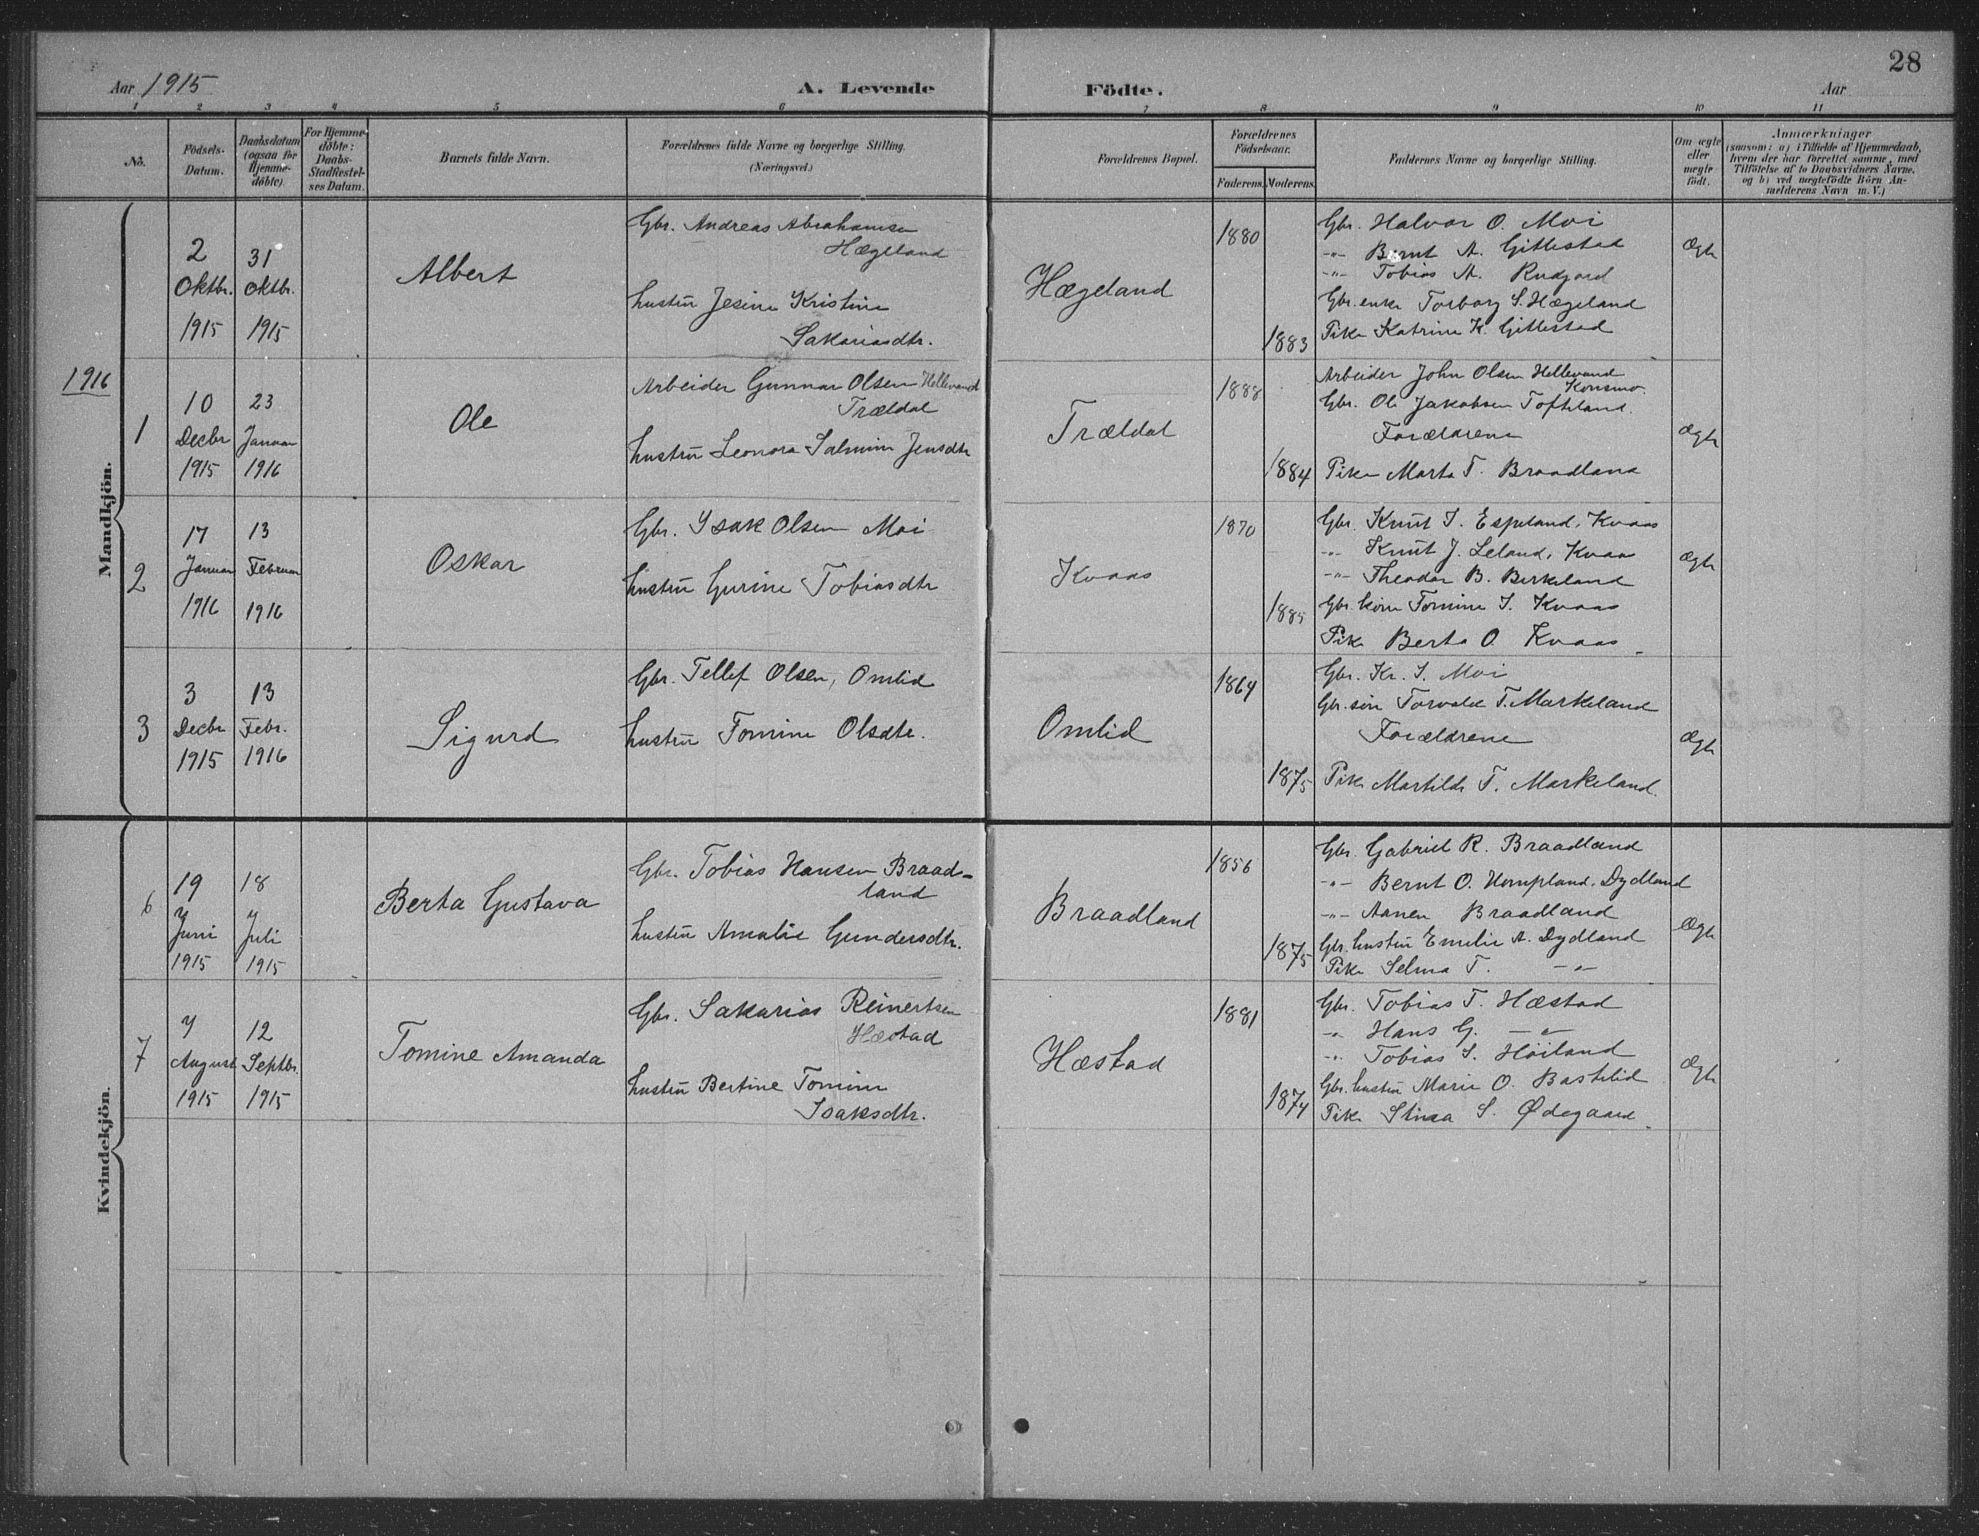 28
Aar 1915
A. Levende Födte.
Aar
1 2 3 4 5 6 7 8 9 10 11
No.
Födsels-
Datum.
Daabsdatum
(ogsaa for
Hjemme-
døbte).
For Hjemme-
døbte:
Daabs-
Stadfæstel-
ses Datum.
Barnets fulde Navn.
Forældrenes fulde Navne og borgerlige Stilling.
(Næringsvei.)
Forældrenes Bopæl.
Forældrenes
Födselsaar.
Faderens. Moderens.
Faddernes Navne og borgerlige Stilling.
Om ægte
eller
uægte
født.
Anmærkninger
(saasom: a) i Tilfælde af Hjemmedaab,
hvem der har forrettet samme, med
Tilföielse af to Daabsvidners Navne,
og b) ved uægtefödte Börn An-
melderens Navn m. V.)
Mandkjön.
2
Oktbr.
1915
31
Oktbr.
1915
Albert
Gbr. Andreas Abrahamsen
Hægeland
hustru Jesine Kristine
Sakariasdtr.
Hægeland
1880
1883
Gbr. Halvor O. Moi
-"- Bernt A. Gittestad
-"- Tobias A. Rudjord
Gbr. enke Torborg S. Hægeland
Pike Katrine K. Gittestad
Ægte
1916
1
10
Decbr
1915
23
Januar
1916
Ole
Arbeider Gunnar Olsen Hellevand
Trældal
hustru Leonora Salmine Jensdtr
Trældal
1888
1884
Arbeider John Olsen Hellevand
Konsmo.
Gbr. Ole Jakobsen Tofteland.
Forældrene
Pike Marta T. Braadland
Ægte
2
17
Januar
1916
13
Februar
1916
Oskar
Gbr. Ysak Olsen Moi
hustru Gurine Tobiasdtr
Kvaas
1870
1885
Gbr. Knut I. Espeland, Kvaas
-"- Knut J. Leland, Kvaas
-"- Theodor B. Birkeland
Gbr. kone Tomine I. Kvaas
Pike Berta O. Kvaas
Ægte
3
3
Decbr
1915
13
Febr.
1916
Sigurd
Gbr. Tellef Olsen, Omlid
hustru Tomine Olsdtr.
Omlid
1864
1875
Gbr. Kr. I. Moi
Gbr. søn Torvald T. Markeland
Forældrene
Pike Martilde T. Markeland.
Ægte
Kvindekjön.
6
19
Juni
1915
18
Juli
1915
Berta Gustava
Gbr. Tobias Hansen Braad-
land
hustru Amalie Gundersdtr.
Braadland
1856
1875
Gbr. Gabriel R. Braadland
-"- Bernt O. Hompland, Dydland
-"- Aanen Braadland
Gbr. hustru Emilie A. Dydland
Pike Selma T. -"-
Ægte
7
7
August
1915
12
Septbr.
1915
Tomine Amanda
Gbr. Sakarias Reinertsen
Hæstad
hustru Bertine Tomine
Isaksdtr.
Hæstad
1881
1874
Gbr. Tobias T. Hæstad
-"- Hans G. -"-
-"- Tobias S. Høiland
Gbr. hustru Marie O. Bastelid
Pike Stina S. Ødegaard
Ægte